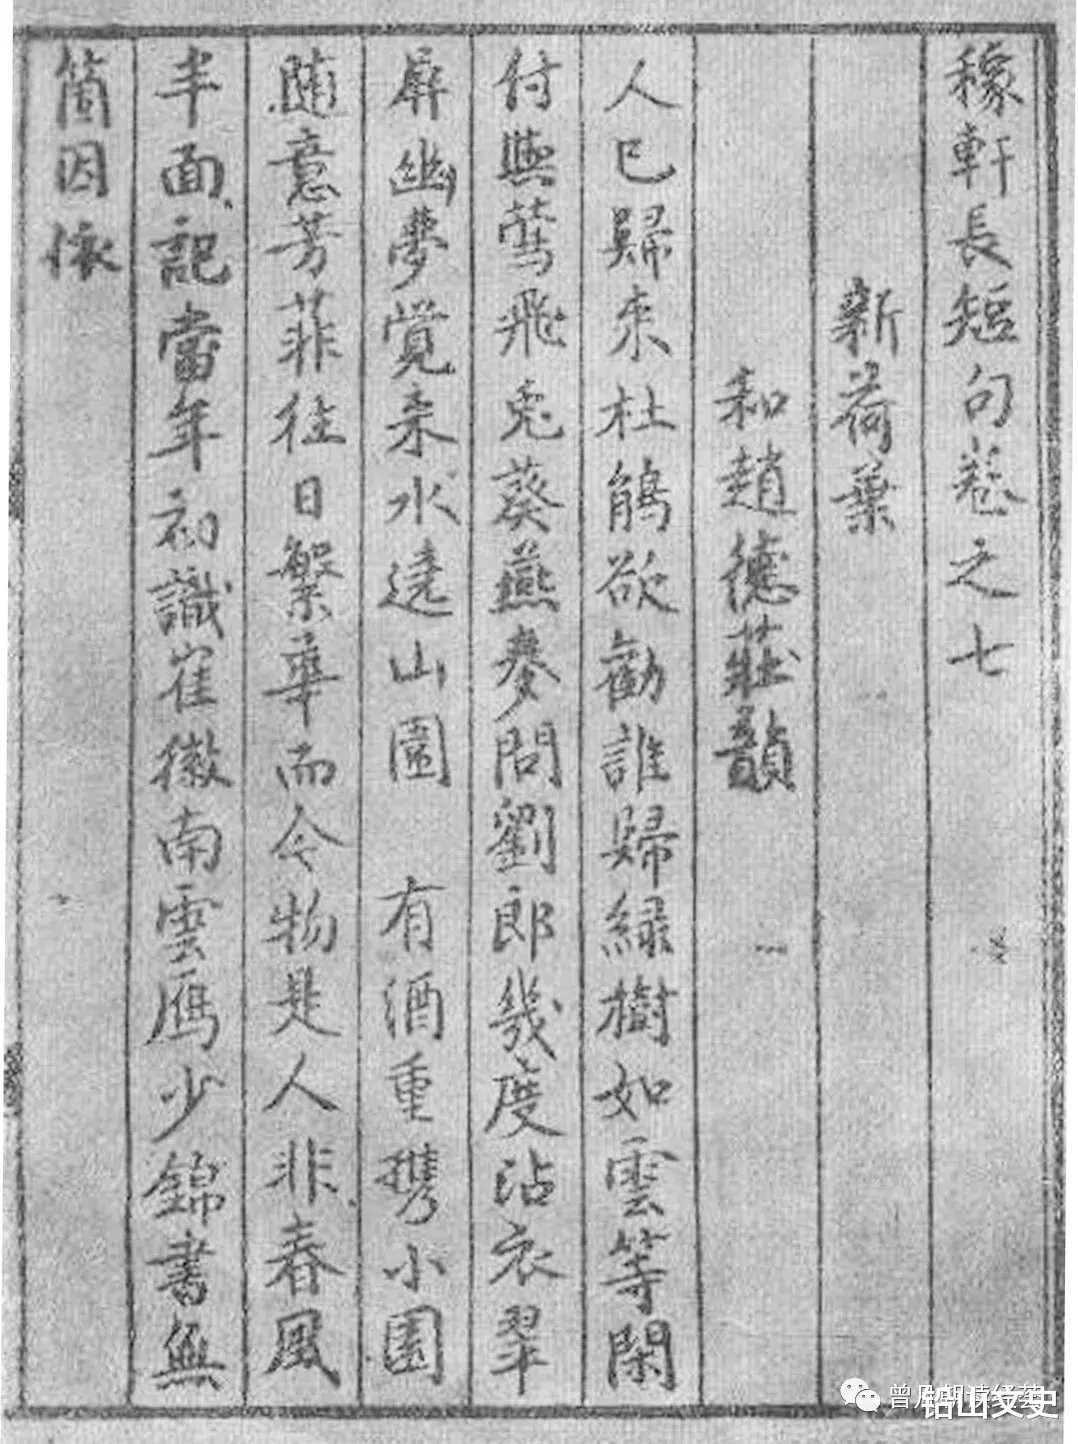 稼軒長短句卷之七
新荷葉
和趙德莊韻
人已歸來杜鵑欲勸誰歸綠樹如雲等閑
付與鶯飛兎葵燕麥問劉郎幾度沾衣翠
屏幽夢覺來水遶山圍 有酒重携小園
隨意芳菲往日繁華而今物是人非春風
半面記當年初識崔徽南雲鴈少錦書無
箇因依
钻山文史